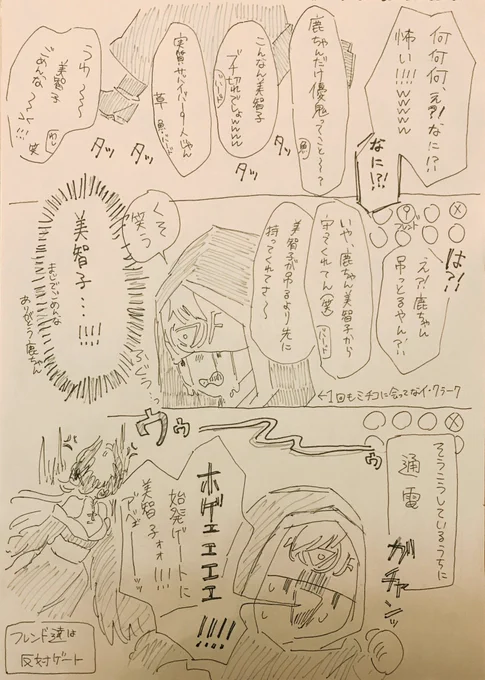 何何何、え?!なに!?!
怖い!!!!wwww
なに!?!
鹿ちゃんだけ優鬼ってこと〜?
こんなん美智子
ブチ切れでしょwwww
実質サバイバー4人じゃん
草
うわ〜〜
美智子
めんな〜〜く!!!
笑
ダッ
ダッ
ダッ
は?!
え?!鹿ちゃん
吊っとるやん?!!
フレンド
いや、鹿ちゃん美智子から
守ってくれてん(笑)
美智子が吊るより先に
持ってくれてさ〜
くそ
笑う
美智子…!!!!
まじでごめんな
ありがとう鹿ちゃん
←1回もミチコに会ってなイ・クラーク
そうこうしているうちに
通電
ガチャンッ
ウゥ
ゥ
ホゲェエエエ!!!!
始発ゲートに
美智子ォォ!!!!
フレンド達は
反対ゲート